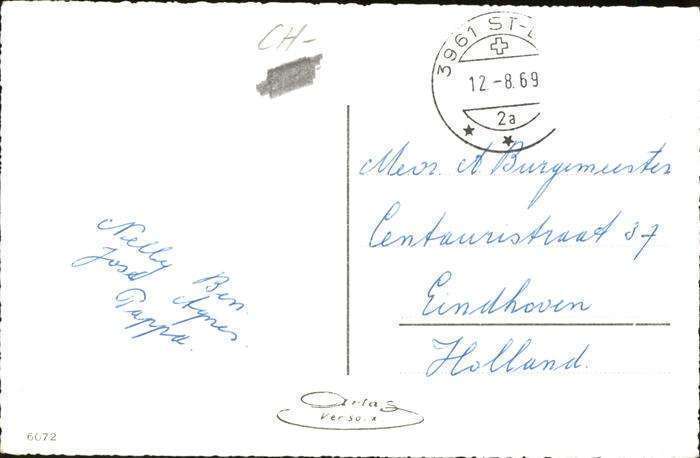 CH-
3961 ST-L
12.-8.69
2a
Mevr. A Burgemeester
Centauristraat 37
Eindhoven
Holland.
Nelly Ben.
José Agnes.
Pappa.
Artas
Verso.x
6072